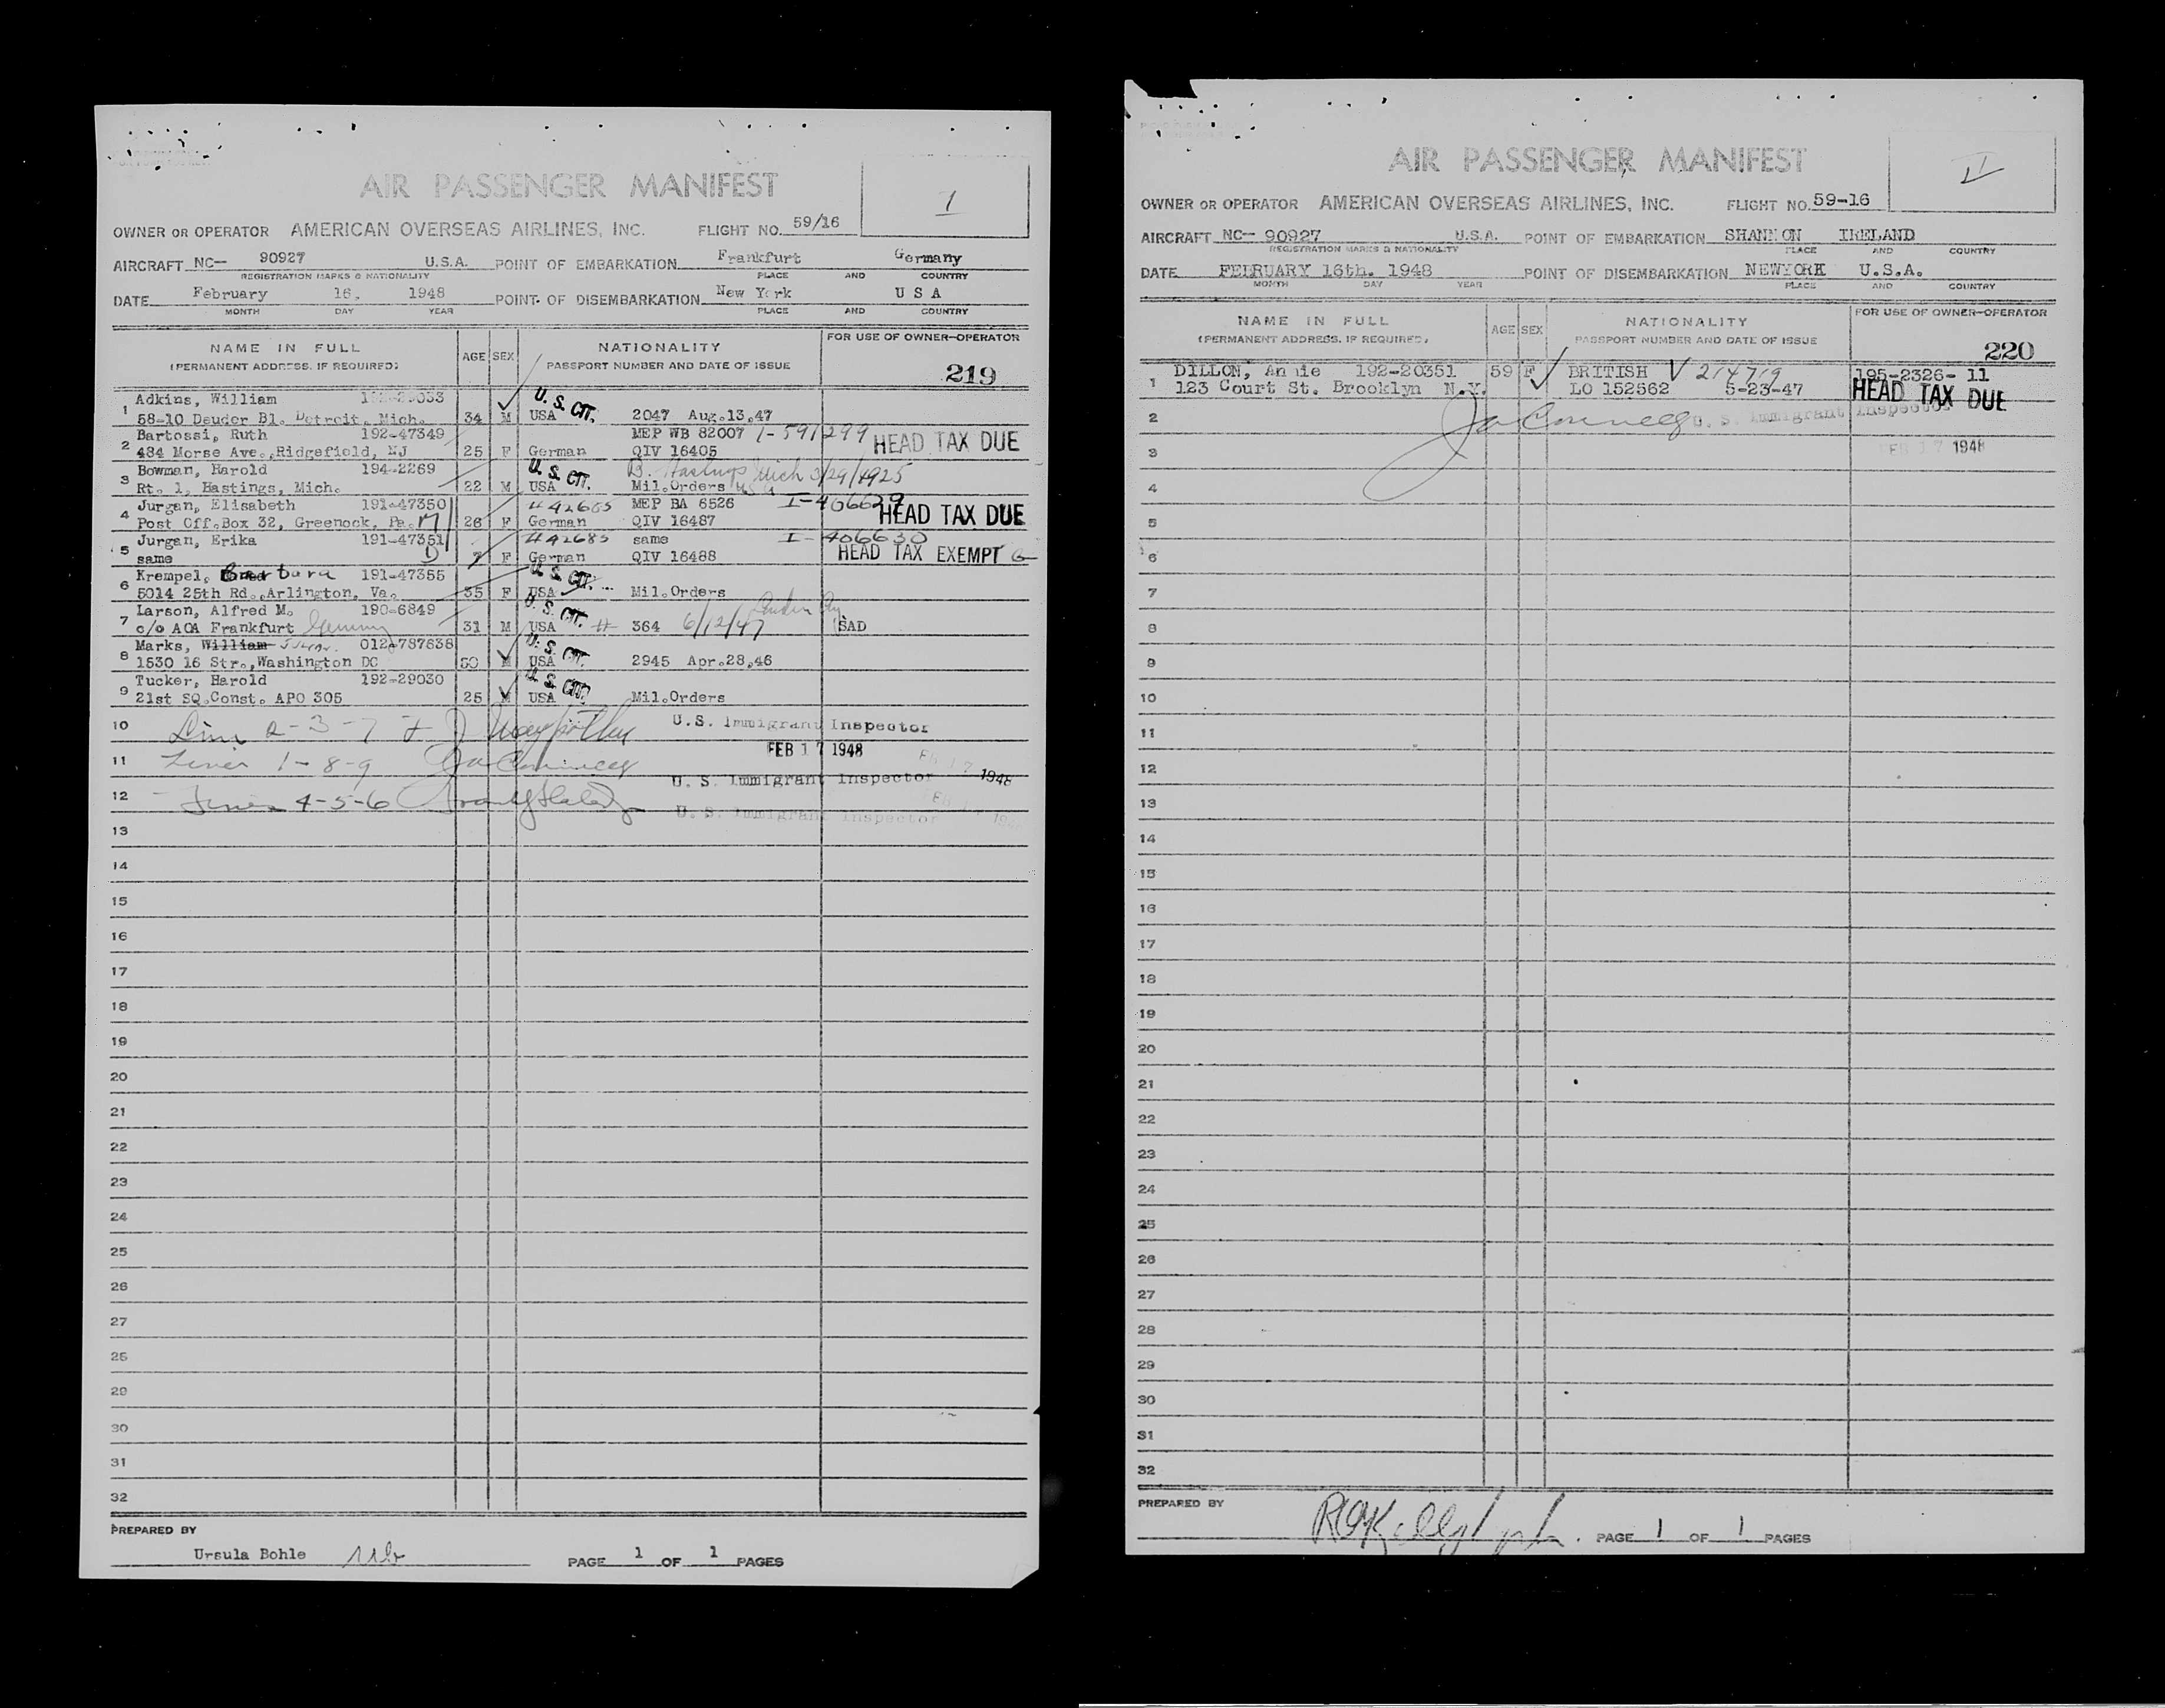 AIR PASSENGER MANIFEST
I
OWNER OR OPERATOR AMERICAN OVERSEAS AIRLINES, INC. FLIGHT NO. 59/16
AIRCRAFT NC— 90927 U.S.A. POINT OF EMBARKATION Frankfurt Germany
REGISTRATION MARKS & NATIONALITY PLACE AND COUNTRY
DATE February 16, 1948 POINT OF DISEMBARKATION New York U S A
MONTH DAY YEAR PLACE AND COUNTRY
NAME IN FULL AGE SEX NATIONALITY FOR USE OF OWNER—OPERATOR
(PERMANENT ADDRESS, IF REQUIRED) PASSPORT NUMBER AND DATE OF ISSUE 219
Adkins, William U. S. CIT.
1 58-10 Deuder Bl. Detroit, Mich. 34 M USA 2047 Aug.13,47
Bartossi, Ruth 192-47349 MEP WB 82007 I-591299 HEAD TAX DUE
2 484 Morse Ave.,Ridgefield, NJ 25 F German QIV 16405
Bowman, Harold 194-2269 U. S. CIT. B. Hastings Mich 3/29/1925
3 Rt. 1, Hastings, Mich. 22 M USA Mil.Orders
Jurgan, Elisabeth 191-47350 #42685 MEP BA 6526 I-406629 HEAD TAX DUE
4 Post Off.Box 32, Greenock, Pa. M 26 F German QIV 16487
Jurgan, Erika 191-47351 #42685 same I-406630
5 same D 7 F German QIV 16488 HEAD TAX EXEMPT G
Krempel, Barbara 191-47355 U. S. CIT.
6 5014 25th Rd.,Arlington, Va. 35 F USA Mil.Orders
Larson, Alfred M. 190-6849 U. S. CIT.
7 c/o AOA Frankfurt Germany 31 M USA # 364 6/12/47 SAD
Marks, William 012-787638 U. S. CIT.
8 1530 16 Str.,Washington DC 50 M USA 2945 Apr.28,46
Tucker, Harold 192-29030 U. S. CIT.
9 21st SQ.Const. APO 305 25 M USA Mil.Orders
10 Line 2-3-7 U.S. Immigrant Inspector
FEB 17 1948
11 Lines 1-8-9 FEB 17 1948
U. S. Immigrant Inspector
12 Lines 4-5-6
U. S. Immigrant Inspector
13
14
15
16
17
18
19
20
21
22
23
24
25
26
27
28
29
30
31
32
PREPARED BY
Ursula Bohle ub PAGE 1 OF 1 PAGES
AIR PASSENGER MANIFEST
II
OWNER OR OPERATOR AMERICAN OVERSEAS AIRLINES, INC. FLIGHT NO. 59-16
AIRCRAFT NC— 90927 U.S.A. POINT OF EMBARKATION SHANNON IRELAND
REGISTRATION MARKS & NATIONALITY PLACE AND COUNTRY
DATE FEBRUARY 16th. 1948 POINT OF DISEMBARKATION NEWYORK U.S.A.
MONTH DAY YEAR PLACE AND COUNTRY
NAME IN FULL AGE SEX NATIONALITY FOR USE OF OWNER—OPERATOR
(PERMANENT ADDRESS, IF REQUIRED) PASSPORT NUMBER AND DATE OF ISSUE 220
DILLON, Annie 192-20351 59 F BRITISH V 214719 195-2326- 11
1 123 Court St. Brooklyn N.Y. LO 152562 5-23-47 HEAD TAX DUE
2 U. S. Immigrant Inspector
3 FEB 17 1948
4
5
6
7
8
9
10
11
12
13
14
15
16
17
18
19
20
21
22
23
24
25
26
27
28
29
30
31
32
PREPARED BY
PAGE 1 OF 1 PAGES